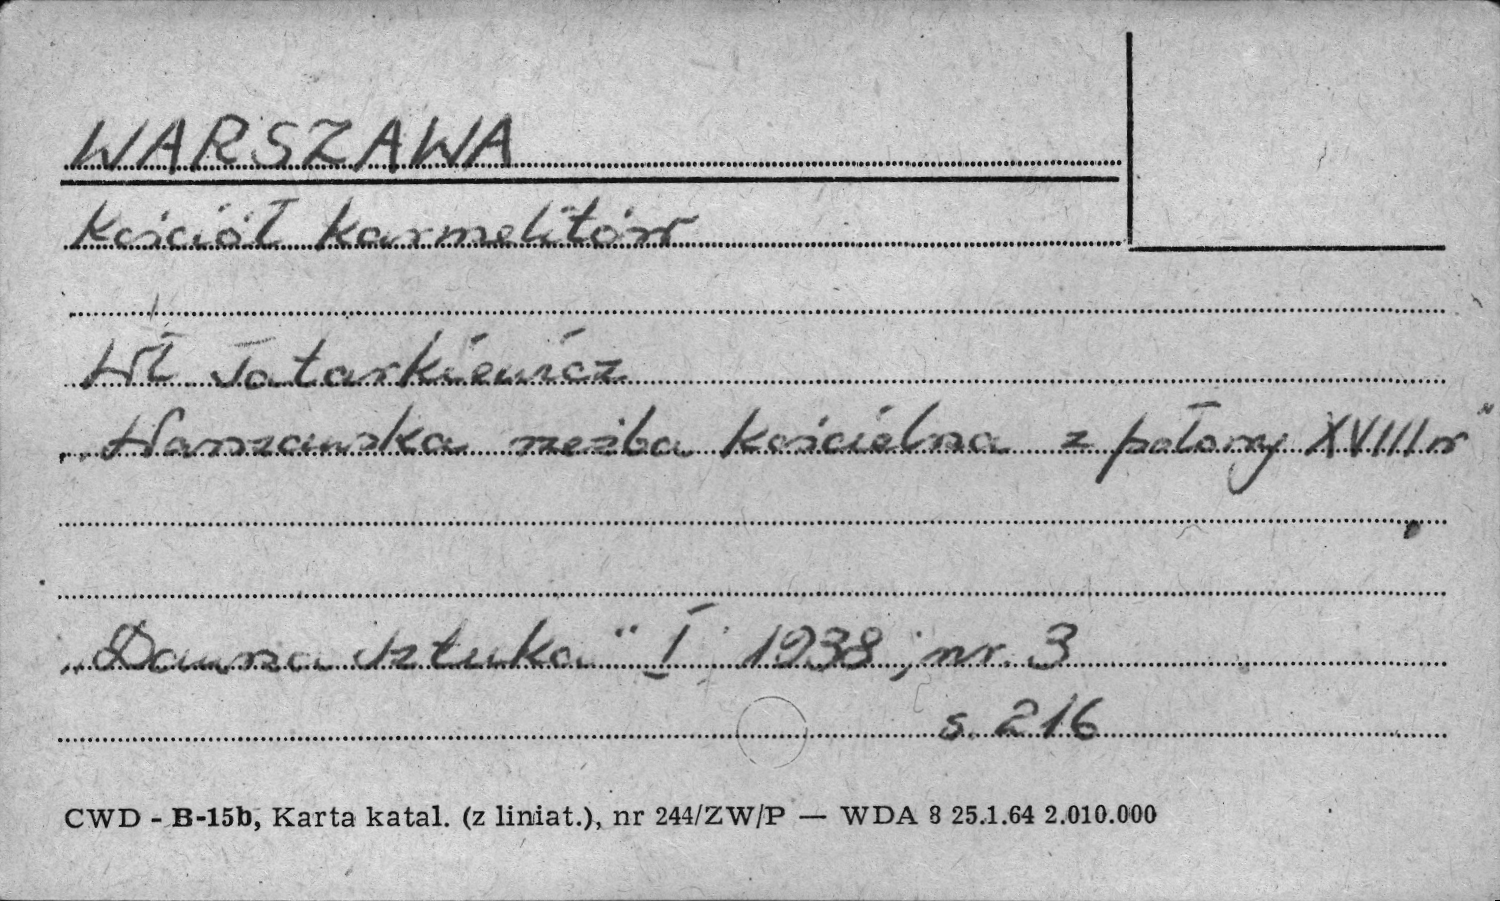 WARSZAWA
Kościół karmelitów
Wł Tatarkiewicz
„Warszawska rzeźba kościelna z połowy XVIII w"
„Dawna sztuka" I 1938, nr. 3
s. 216
CWD - B-15b, Karta katal. (z liniat.), nr 244/ZW/P — WDA 8 25.1.64 2.010.000